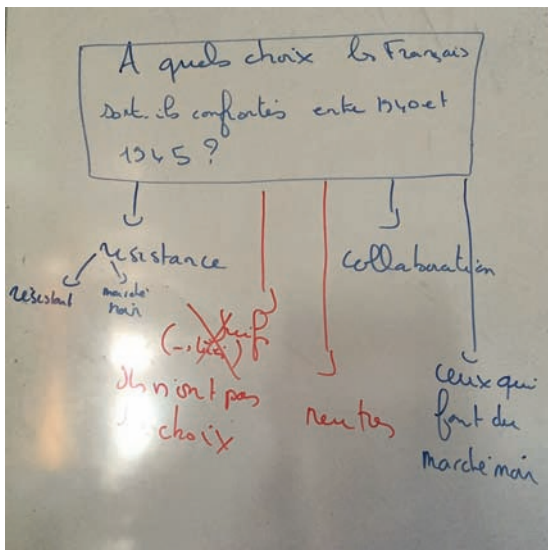 A quels choix les Français
sont-ils confrontés entre 1940 et
1945 ?
résistance
collaboration
résistant
marché
noir
Juif
ils n'ont pas
choix
neutres
ceux qui
font du
marché noir